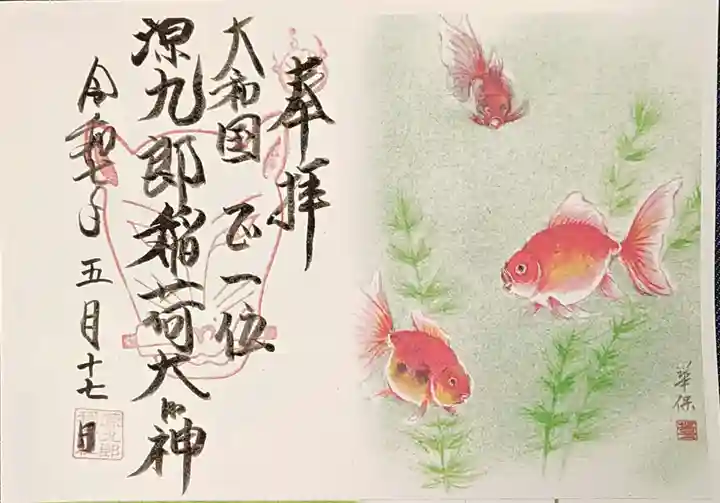 奉拝
大和国 正一位
源九郎稲荷大明神
令和七年 五月十七日
華保